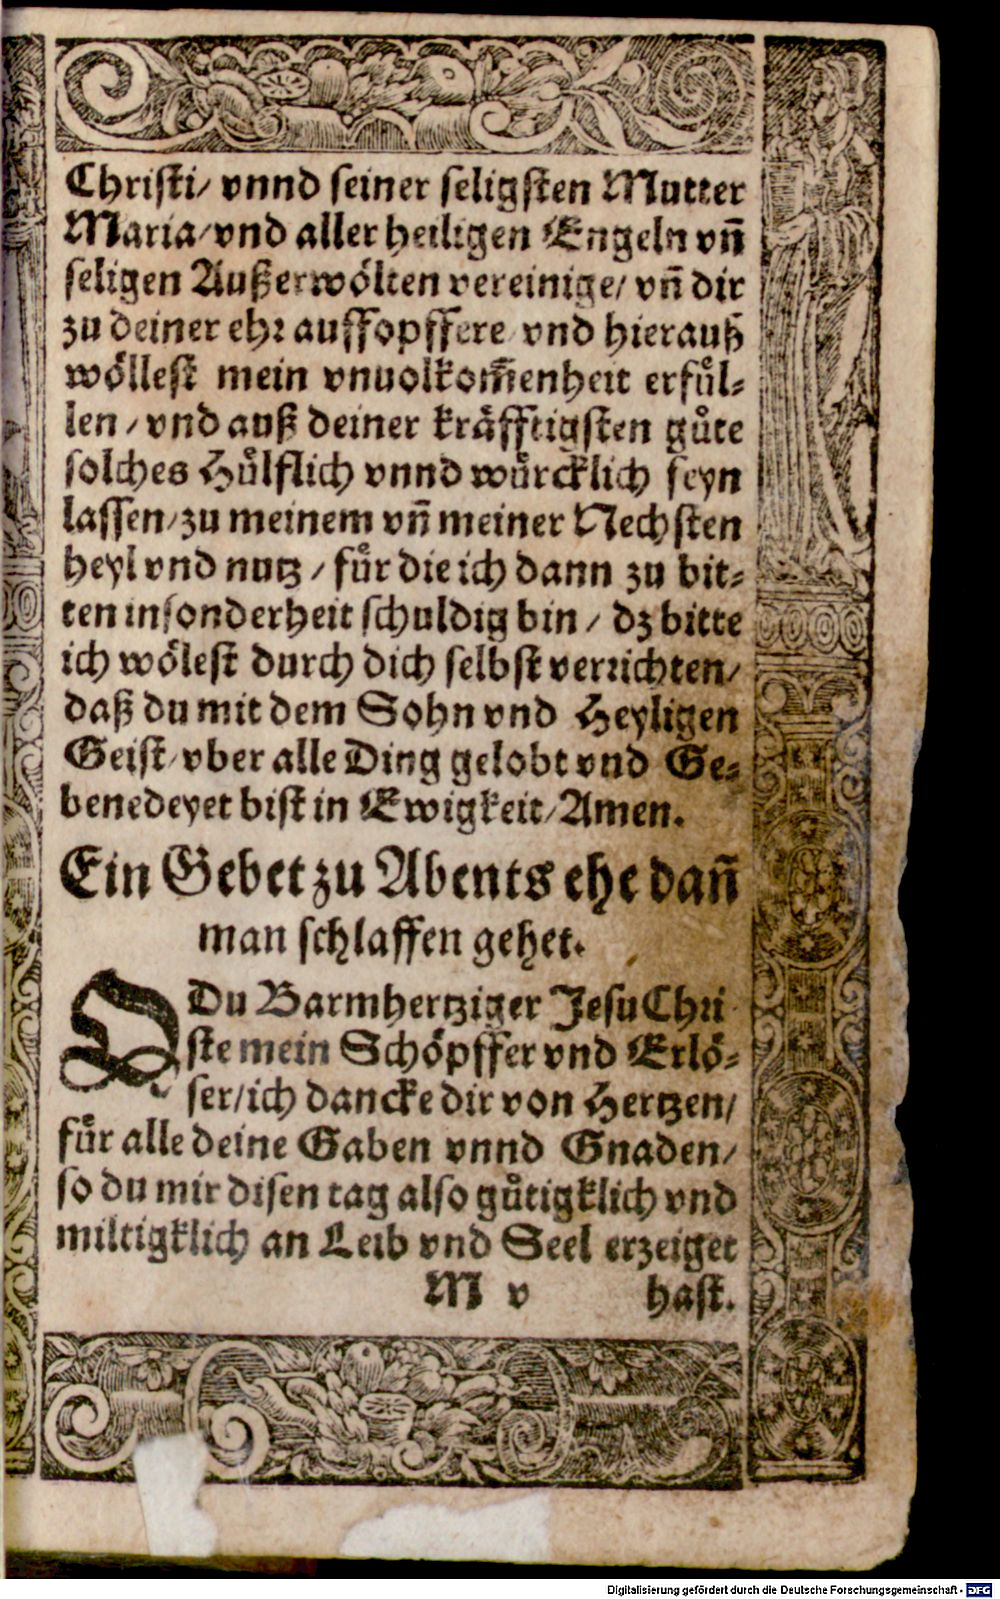 Christi/ vnnd seiner seligsten Mutter
Maria/vnd aller heiligen Engeln vñ
seligen Außerwölten vereinige/ vñ dir
zu deiner ehr auffopffere/vnd hierauß
wöllest mein vnuolkom̃enheit erfůl⸗
len/vnd auß deiner kräfftigsten gůte
solches Hůlflich vnnd wůrcklich seyn
lassen/zu meinem vñ meiner Nechsten
heyl vnd nutz/ fůr die ich dann zu bit⸗
ten insonderheit schuldig bin/ dz bitte
ich wölest durch dich selbst verrichten/
daß du mit dem Sohn vnd Heyligen
Geist/vber alle Ding gelobt vnd Ge⸗
benedeyet bist in Ewigkeit/Amen.
Ein Gebet zu Abents ehe dañ
man schlaffen gehet.
O Du Barmhertziger Jesu Chri
ste mein Schöpffer vnd Erlö⸗
ser/ich dancke dir von Hertzen/
fůr alle deine Gaben vnnd Gnaden/
so du mir disen tag also gůtigklich vnd
miltigklich an Leib vnd Seel erzeiget
M v hast.
Digitalisierung gefördert durch die Deutsche Forschungsgemeinschaft - DFG